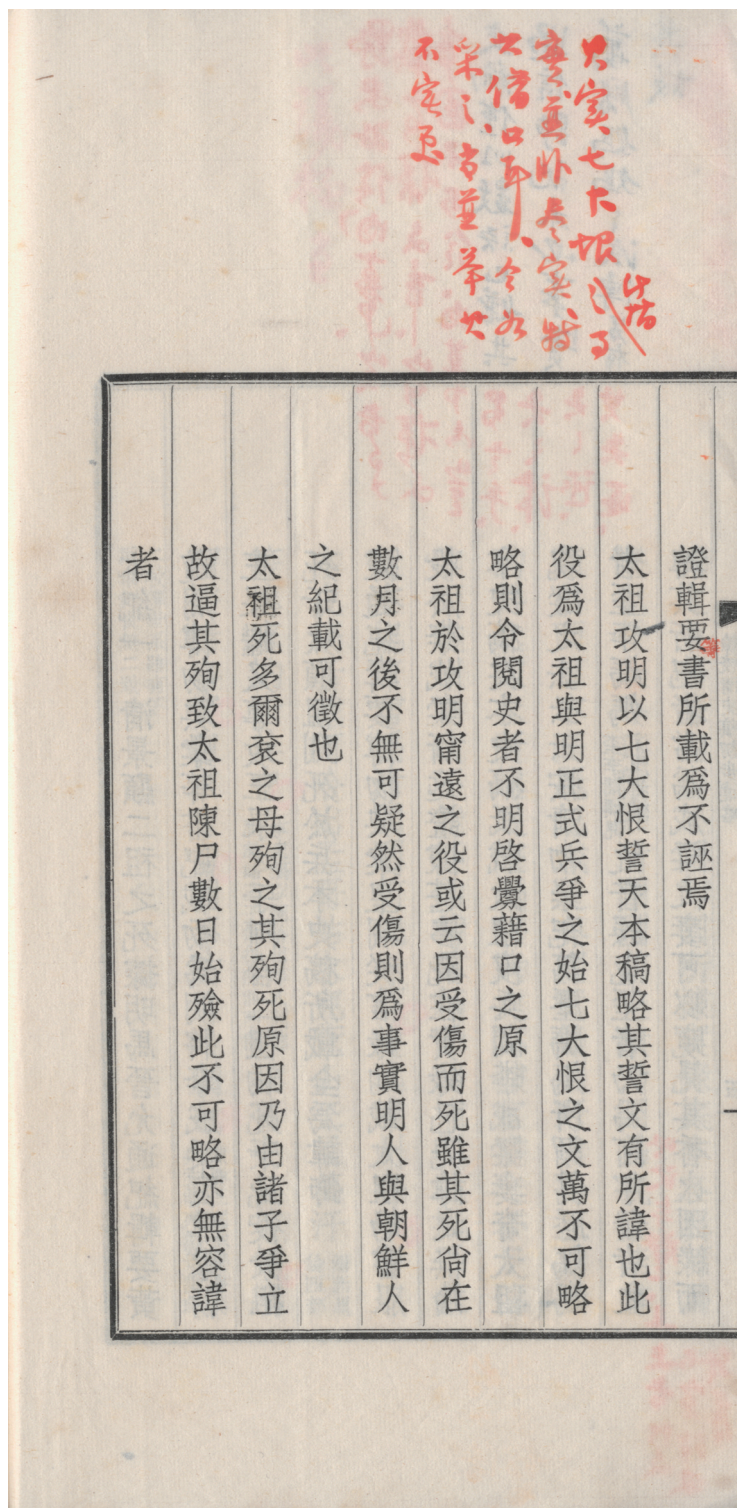 其實七大恨之
實並非尽實、特
其借口耳、今如
采之、當並舉其
不實處
證輯要書所載爲不誣焉
太祖攻明以七大恨誓天本稿略其誓文有所諱也此
役爲太祖與明正式兵爭之始七大恨之文萬不可略
略則令閱史者不明啓釁藉口之原
太祖於攻明甯遠之役或云因受傷而死雖其死尙在
數月之後不無可疑然受傷則爲事實明人與朝鮮人
之紀載可徵也
太祖死多爾袞之母殉之其殉死原因乃由諸子爭立
故逼其殉致太祖陳尸數日始殮此不可略亦無容諱
者